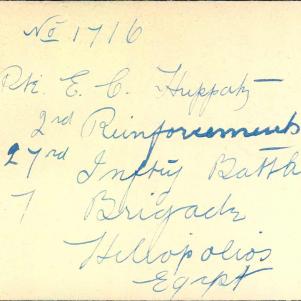 No 1716
Pte. E. C. Huppatz
2nd Reinforcements
27rd Inftry Battn
7 Brigade
Heliopolios
Egypt